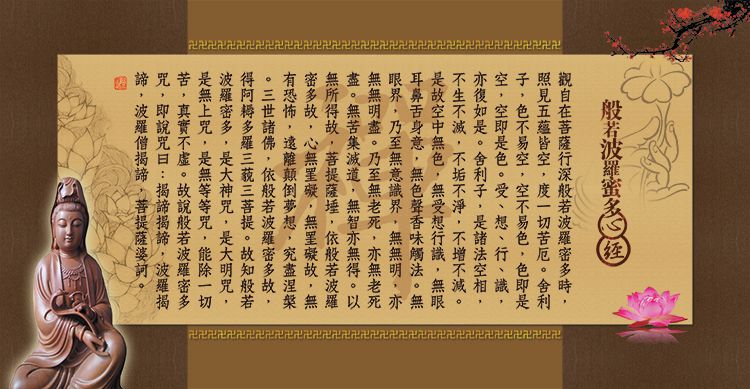 般若波羅蜜多心經
觀自在菩薩行深般若波羅蜜多時，
照見五蘊皆空，度一切苦厄。舍利
子，色不易空，空不易色，色即是
空，空即是色。受、想、行、識，
亦復如是。舍利子，是諸法空相，
不生不滅，不垢不淨，不增不減。
是故空中無色，無受想行識，無眼
耳鼻舌身意，無色聲香味觸法。無
眼界，乃至無意識界，無無明，亦
無無明盡，乃至無老死，亦無老死
盡。無苦集滅道，無智亦無得。以
無所得故，菩提薩埵，依般若波羅
密多故，心無罣礙，無罣礙故，無
有恐怖，遠離顛倒夢想，究盡涅槃
。三世諸佛，依般若波羅密多故，
得阿耨多羅三藐三菩提。故知般若
波羅密多，是大神咒，是大明咒，
是無上咒，是無等等咒，能除一切
苦，真實不虛。故說般若波羅密多
咒，即說咒曰：揭諦揭諦，波羅揭
諦，波羅僧揭諦，菩提薩婆訶。
禪